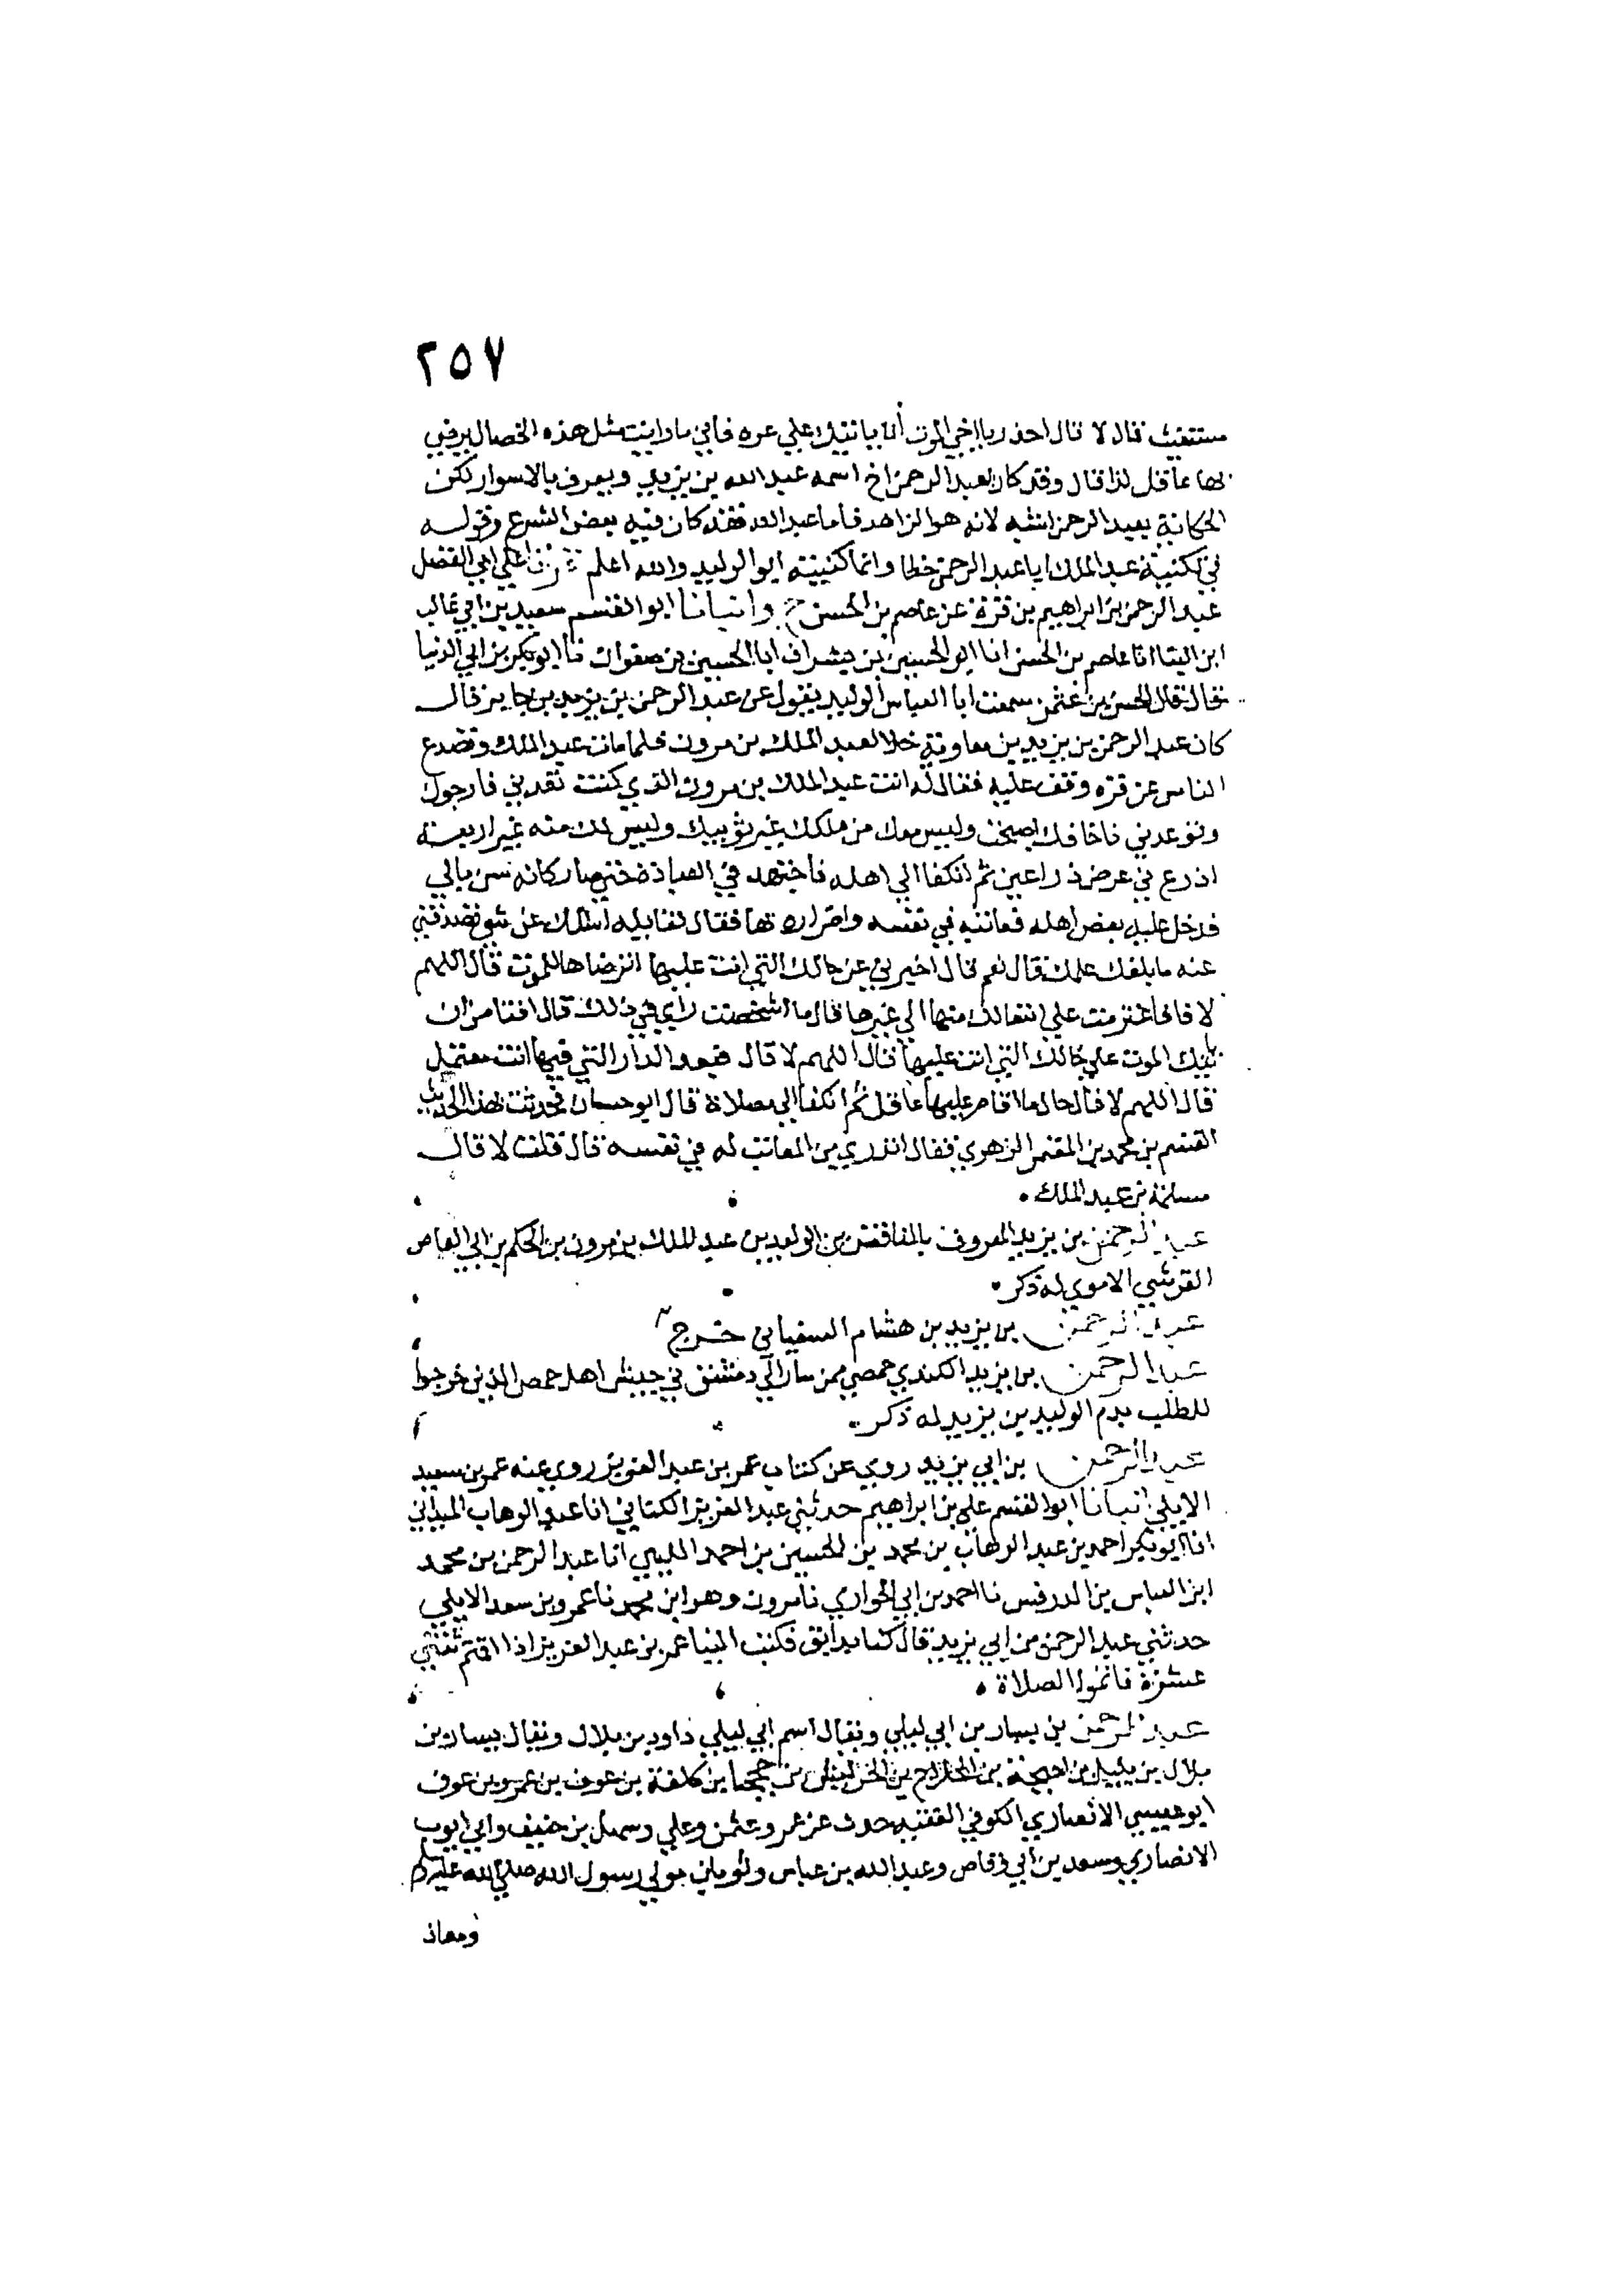 ٢٥٧
مستعتب قال لا قال احذر يا اخي الموت أن ياتيك علي غره فاني ما رايت مثل هذه الخصال يرضي
بها عاقل لذا قال وقد كان لعبد الرحمن اخ اسمه عبد الله بن يزيد ويعرف بالاسوار لكن
الحكاية بعبد الرحمن اشبه لانه هو الزاهد فاما عبد الله فقد كان فيه بعض الشرع وقوله
في تكنية عبد الملك ابا عبد الرحمن خطا وانما كنيته ابو الوليد والله اعلم علي ابي الفضل
عبد الرحمن بن ابراهيم بن قرة عن عاصم بن الحسن ح وانبانا ابو القسم سعيد بن ابي غالب
ابن البنا انا عاصم بن الحسن انا ابو الحسين بن بشران انا الحسين بن صفوان نا ابو بكر بن ابي الدنيا
قال قال الحسن بن عثمن سمعت ابا العباس الوليد يقول عن عبد الرحمن بن يزيد بن جابر قال
كان عبد الرحمن بن يزيد بن معاوية خلا لعبد الملك بن مرون فلما مات عبد الملك وتصدع
الناس عن قبره وقف عليه فقال له انت عبد الملك بن مرون الذي كنت تعدني فارجوك
وتوعدني فاخافك اصبحت وليس معك من ملكك غير ثوبيك وليس لك منه غير اربعة
اذرع في عرض ذراعين ثم انكفا الي اهله فاجتهد في العبادة حتي صار كانه شن بالي
فدخل عليه بعض اهله فعاتبه في نفسه واضراره بها فقال لقايله اسلك عن شي تصدقني
عنه ما بلغك علمك قال نعم قال اخبرني عن حالك التي انت عليها اترضاها للموت قال اللهم
لا قال اعتزمت علي انتقالك منها الي غيرها قال ما اشخصت رايي في ذلك قال افتامن ان
ياتيك الموت علي حالك التي انت عليها قال اللهم لا قال فبعد الدار التي فيها انت معتمل
قال اللهم لا قال حال ما اقام عليها عاقل ثم انكفا الي مصلاه قال ابو حسان فحدثت بهذا الحديث
القسم بن محمد بن المعتمر الزهري فقال اتدري من المعاتب له في نفسه قال قلت لا قال
مسلمة بن عبد الملك
عبد الرحمن بن يزيد المعروف بالناقص بن الوليد بن عبد الملك بن مرون بن الحكم بن ابي العاص
القرشي الاموي له ذكر
عبد الرحمن بن يزيد بن هشام السفياني خرج
عبد الرحمن بن يزيد الكندي حمصي ممن سار الي دمشق في جيش اهل حمص الذين خرجوا
للطلب بدم الوليد بن يزيد له ذكر
عبد الرحمن بن ابي يزيد روي عن كتاب عمر بن عبد العزيز روي عنه عمر بن سعيد
الايلي انبانا ابو القسم علي بن ابراهيم حدثني عبد العزيز الكتاني انا عبد الوهاب الميداني
انا ابو بكر احمد بن عبد الوهاب بن محمد بن الحسين بن احمد اللهبي انا عبد الرحمن بن محمد
ابن العباس بن الدرفس نا احمد بن ابي الحواري نا مرون وهو ابن محمد نا عمرو بن سعد الايلي
حدثني عبد الرحمن بن ابي يزيد قال كنا بدابق فكتب الينا عمر بن عبد العزيز اذا اقمتم ثنتي
عشرة فاتموا الصلاة
عبد الرحمن بن يسار بن ابي ليلي ويقال اسم ابي ليلي داود بن بلال ويقال يسار بن
بلال بن بليل بن احيحة بن الجلاح بن الحريش بن جحجبا بن كلفة بن عوف بن عمرو بن عوف
ابو عيسي الانصاري الكوفي الفقيه حدث عن عمر وعثمن وعلي وسهل بن حنيف وابي ايوب
الانصاري وسعد بن ابي وقاص وعبد الله بن عباس وثوبان مولي رسول الله صلي الله عليه وسلم
ومعاذ